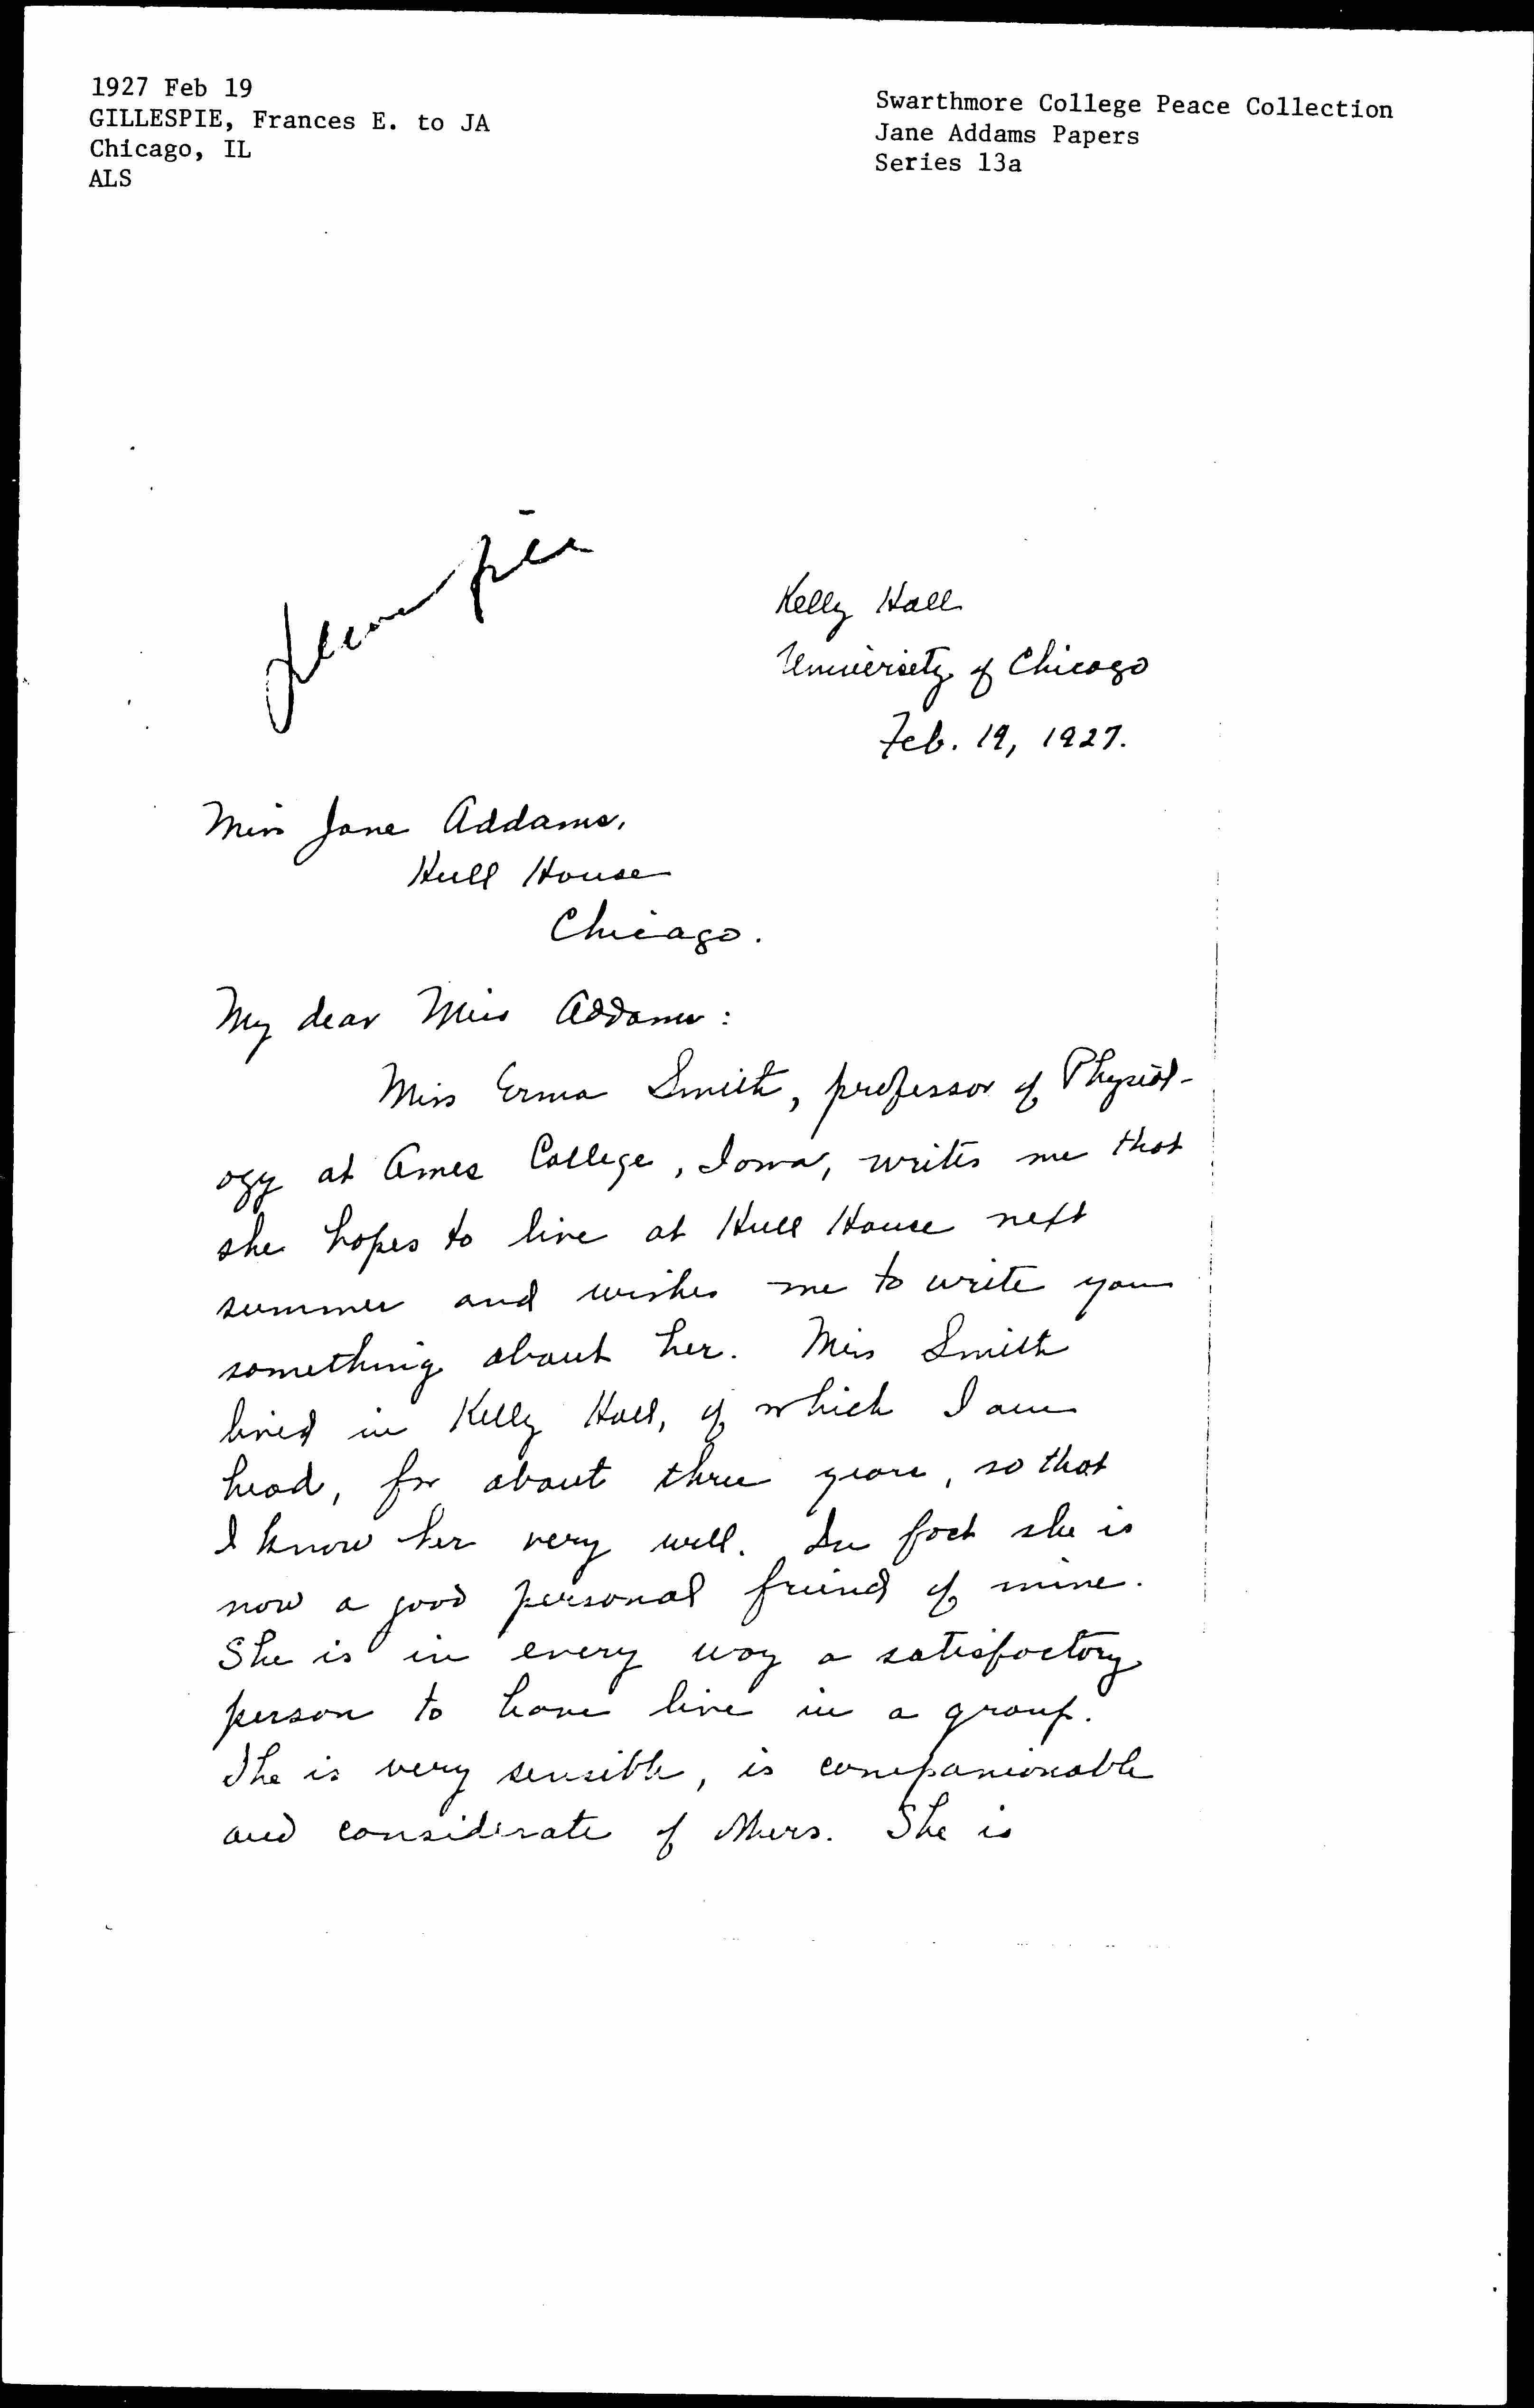 1927 Feb 19
GILLESPIE, Frances E. to JA
Chicago, IL
ALS
Swarthmore College Peace Collection
Jane Addams Papers
Series 13a
Kelly Hall
University of Chicago
Feb. 19, 1927.
Miss Jane Addams,
Hull House
Chicago.
My dear Miss Addams:
Miss Erma Smith, professor of Physiol-
ogy at Ames College, Iowa, writes me that
she hopes to live at Hull House next
summer and wishes me to write you
something about her. Miss Smith
lived in Kelly Hall, of which I am
head, for about three years, so that
I know her very well. In fact she is
now a good personal friend of mine.
She is in every way a satisfactory
person to have live in a group.
She is very sensible, is companionable
and considerate of others. She is